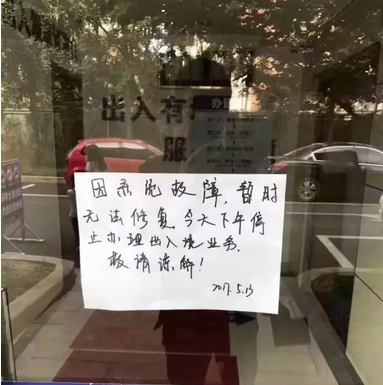 出入
服
因系统故障,暂时
无法修复,今天下午停
止办理出入境业务.
敬请谅解!
2017.5.13